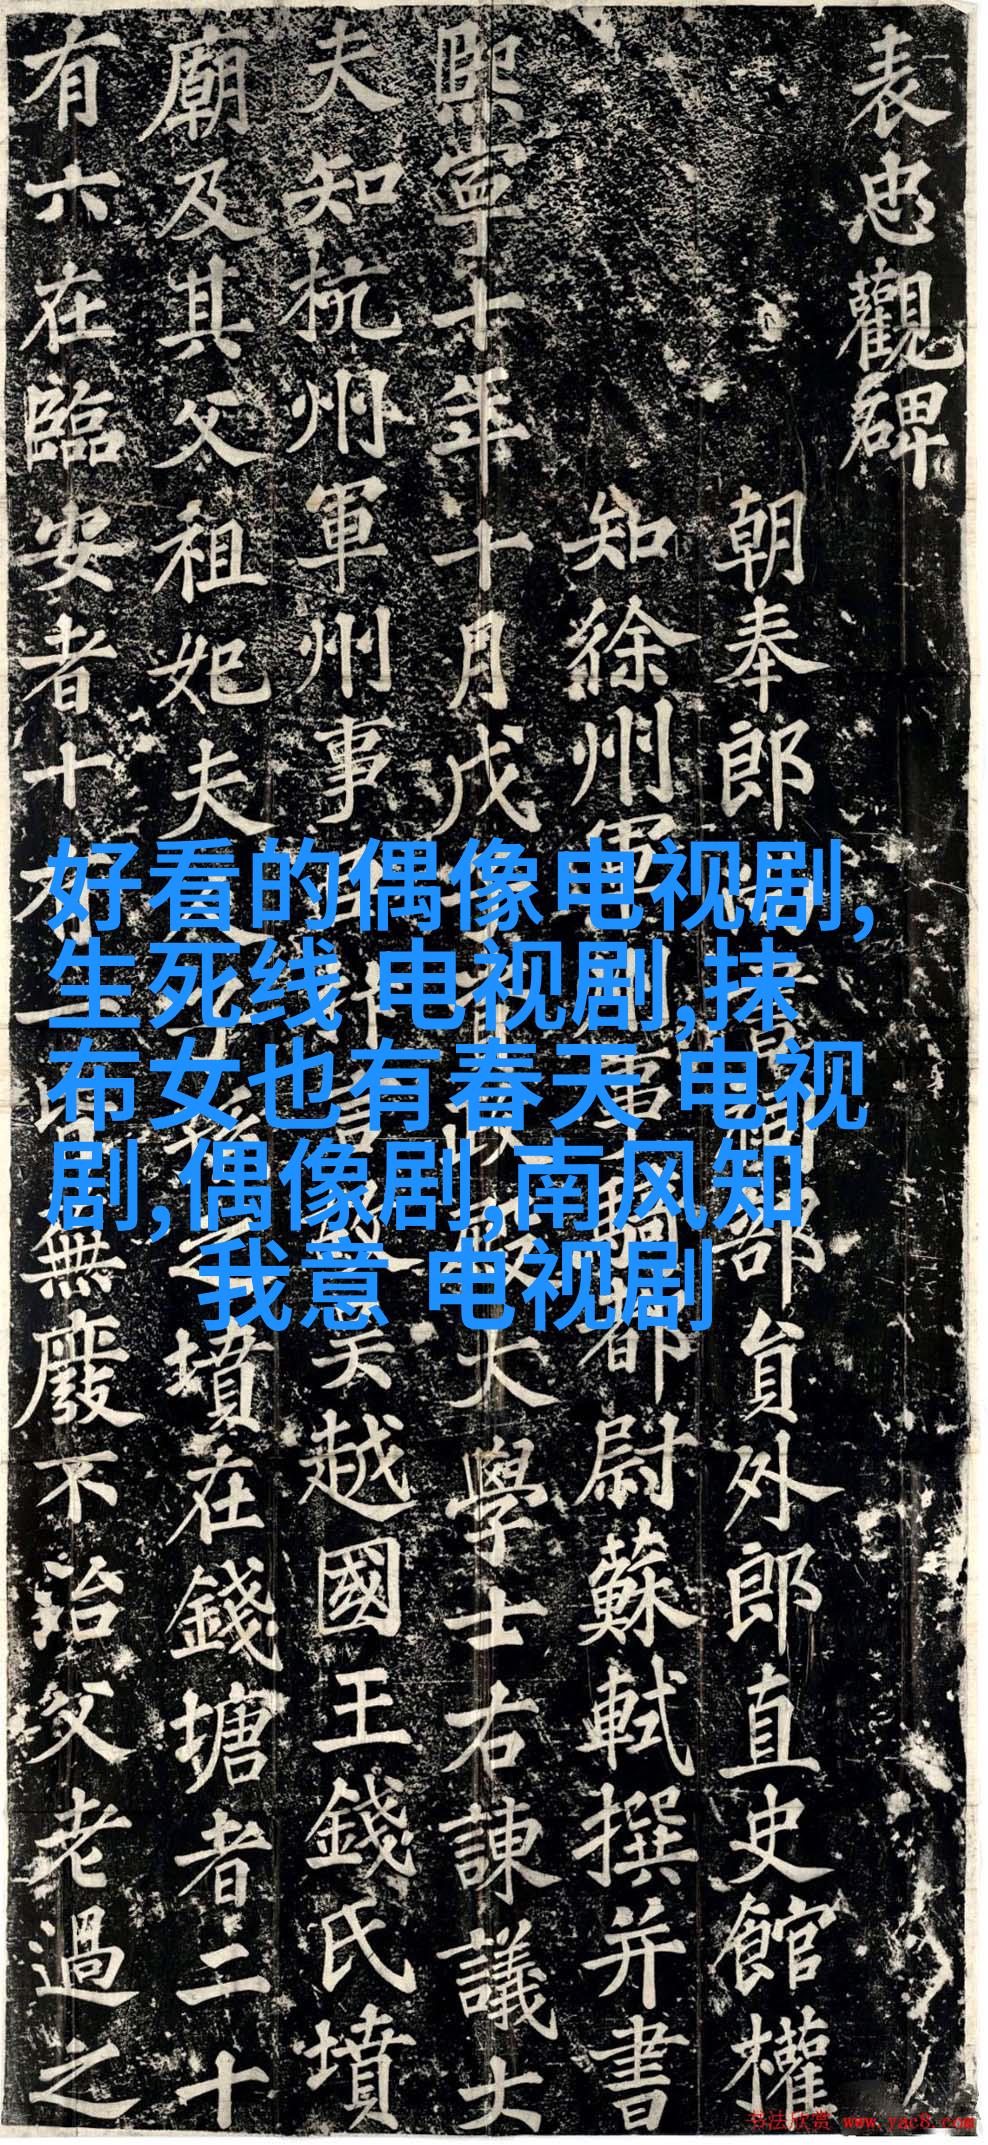 表忠觀碑
朝奉郎祠部貟外郎直史館權
知徐州軍州事騎都尉蘇軾撰并書
熙寧十年十月戊大學士右諫議大
夫知杭州軍州事言越國王錢氏墳
廟及其父祖妣夫之墳在錢塘者二十
有六在臨安者十無廢不治父老過之
好看的偶像电视剧,
生死线 电视剧,抹
布女也有春天 电视
剧,偶像剧,南风知
我意 电视剧
书法欣赏 www.yac8.com